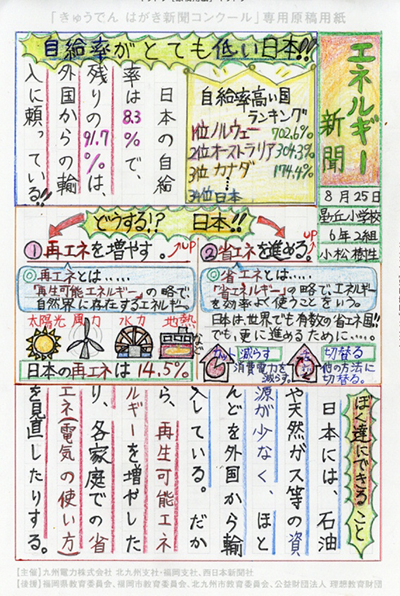 「きゅうでん はがき新聞コンクール」専用原稿用紙
エネルギー
新聞
8月25日
丘小学校
6年2組
小松樹生
自給率がとても低い日本!!
自給率高い国
ランキング
1位ノルウェー 702.6%
2位オーストラリア 304.3%
3位カナダ 174.4%
34位日本
日本の自給
率は8.3%で、
残りの91.7%は、
外国からの輸
入に頼っている!!
どうする!? 日本!!
①再エネを増やす。UP
◎再エネとは……
「再生可能エネルギー」の略で、
自然界に存在するエネルギー。
太陽光 風力 水力 地熱
日本の再エネは14.5%
②省エネを進める。UP
◎省エネとは……
「省エネルギー」の略で、エネルギー
を効率よく使うことをいう。
日本は、世界でも有数の省エネ国!!
でも、更に進めるために……。
減らす
消費電力を
減らす。
切替る
他の方法に
切替る。
ぼく達にできること
日本には、石油
や天然ガス等の資
源が少なく、ほと
んどを外国から輸
入している。だか
ら、再生可能エネ
ルギーを増やした
り、各家庭での省
エネ(電気の使い方)
を見直したりする。
【主催】九州電力株式会社 北九州支社・福岡支社、西日本新聞社
【後援】福岡県教育委員会、福岡市教育委員会、北九州市教育委員会、公益財団法人 理想教育財団